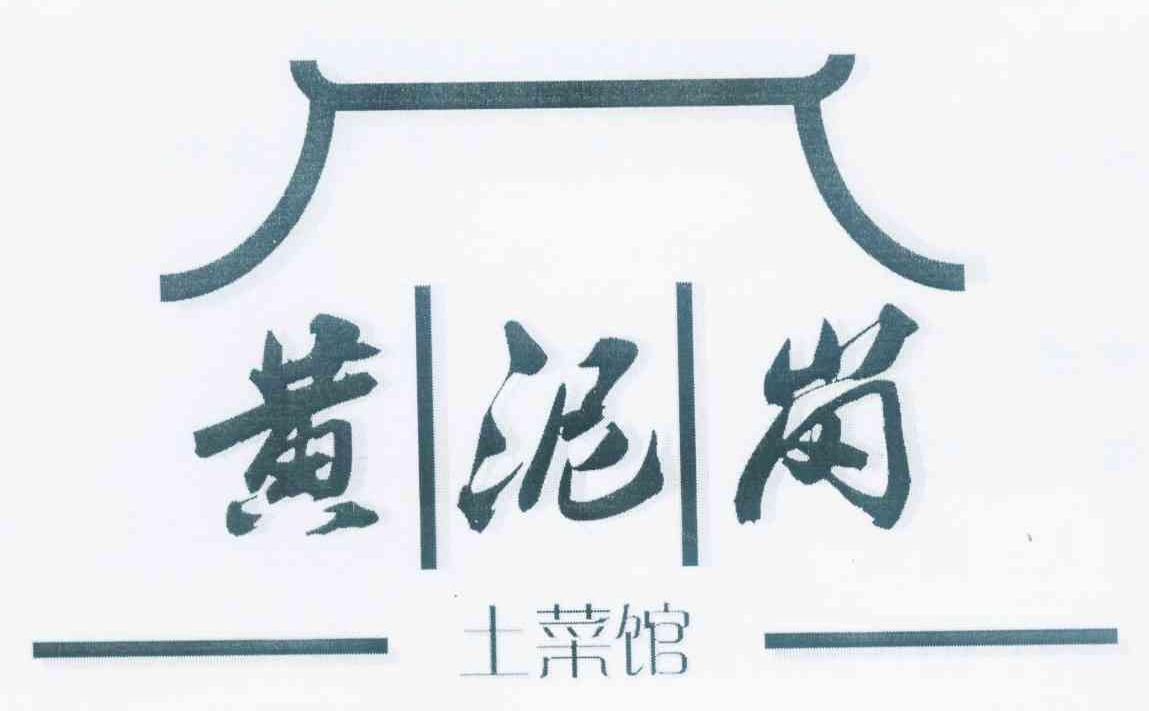 黄泥岗
土菜馆